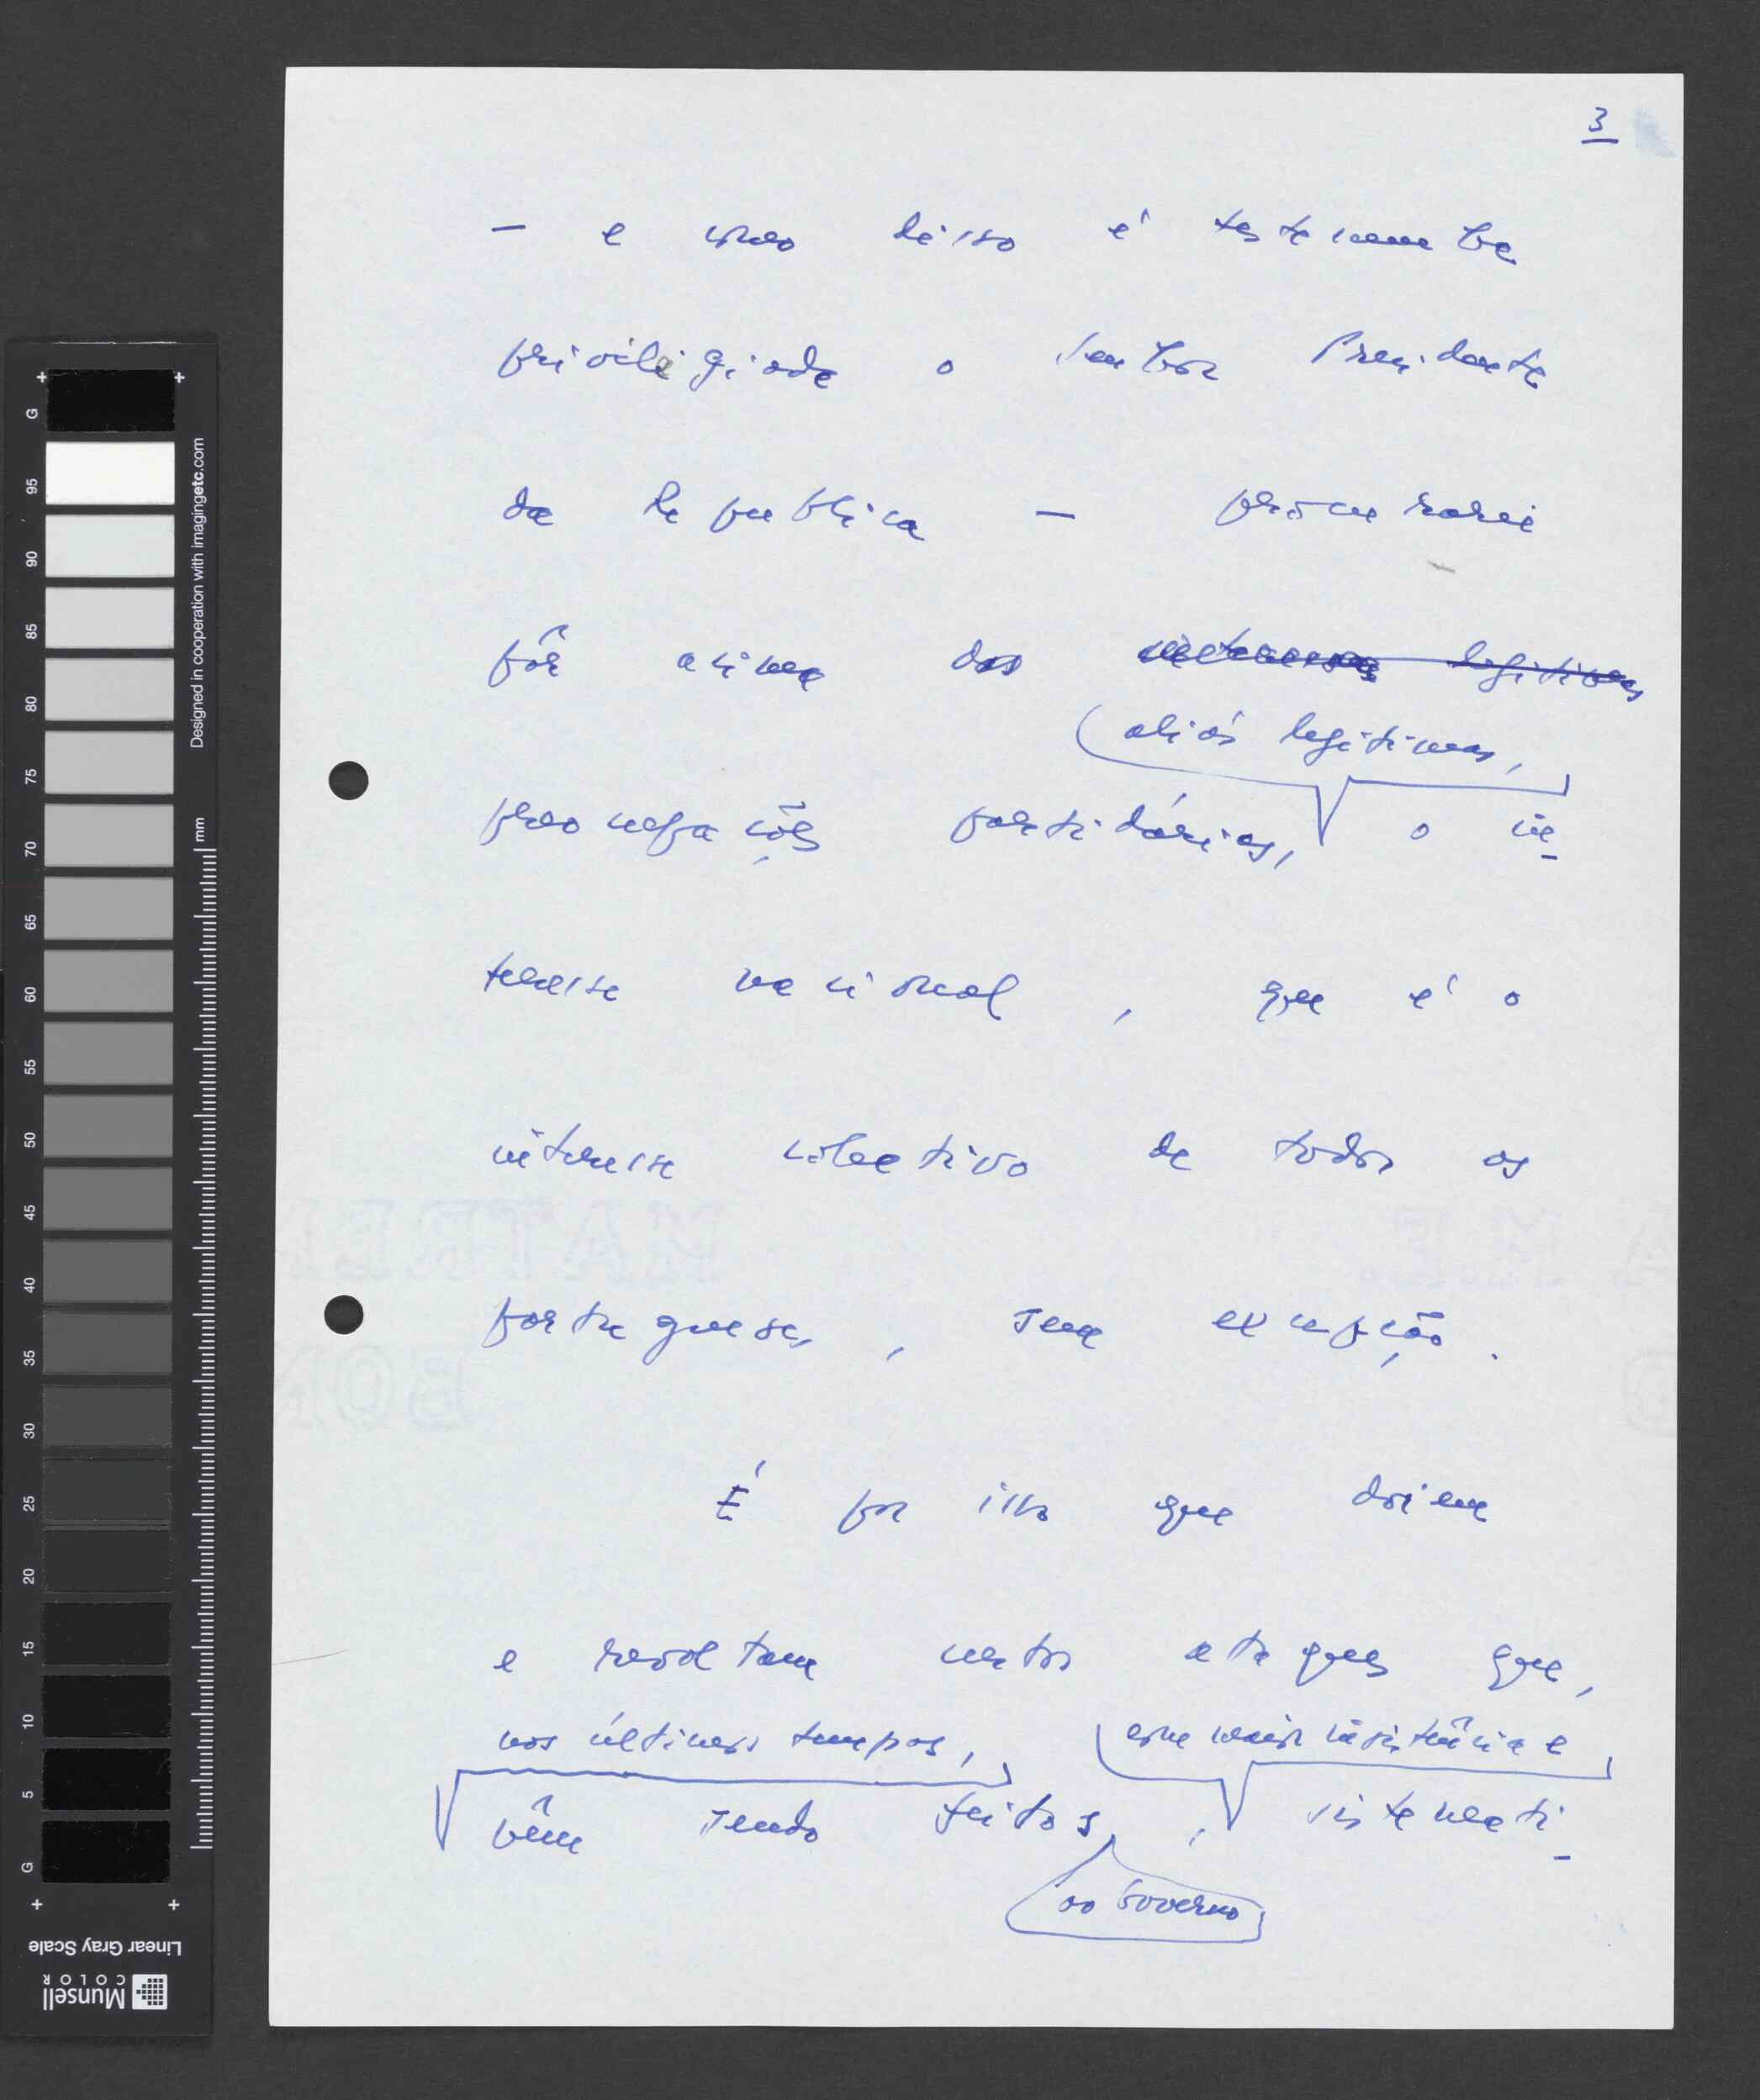 3
– e como disso é testemunha
priviligiada o Senhor Presidente
da Republica – procurarei
pôr acima das interesses legitimos
aliás legitimas,
preocupações partidárias, o in-
teresse nacional, que é o
interesse colectivo de todos os
portugueses, sem excepção.
É por isso que doiem
e revoltam certos ataques que,
nos últimos tempos, com maior insistência e
vêm sendo feitos, sistemati-
ao Governo
G
95
90
85
80
75
70
65
60
55
50
45
40
35
30
25
20
15
10
5
G
mm
Designed in cooperation with imagingetc.com
Linear Gray Scale
Munsell
COLOR